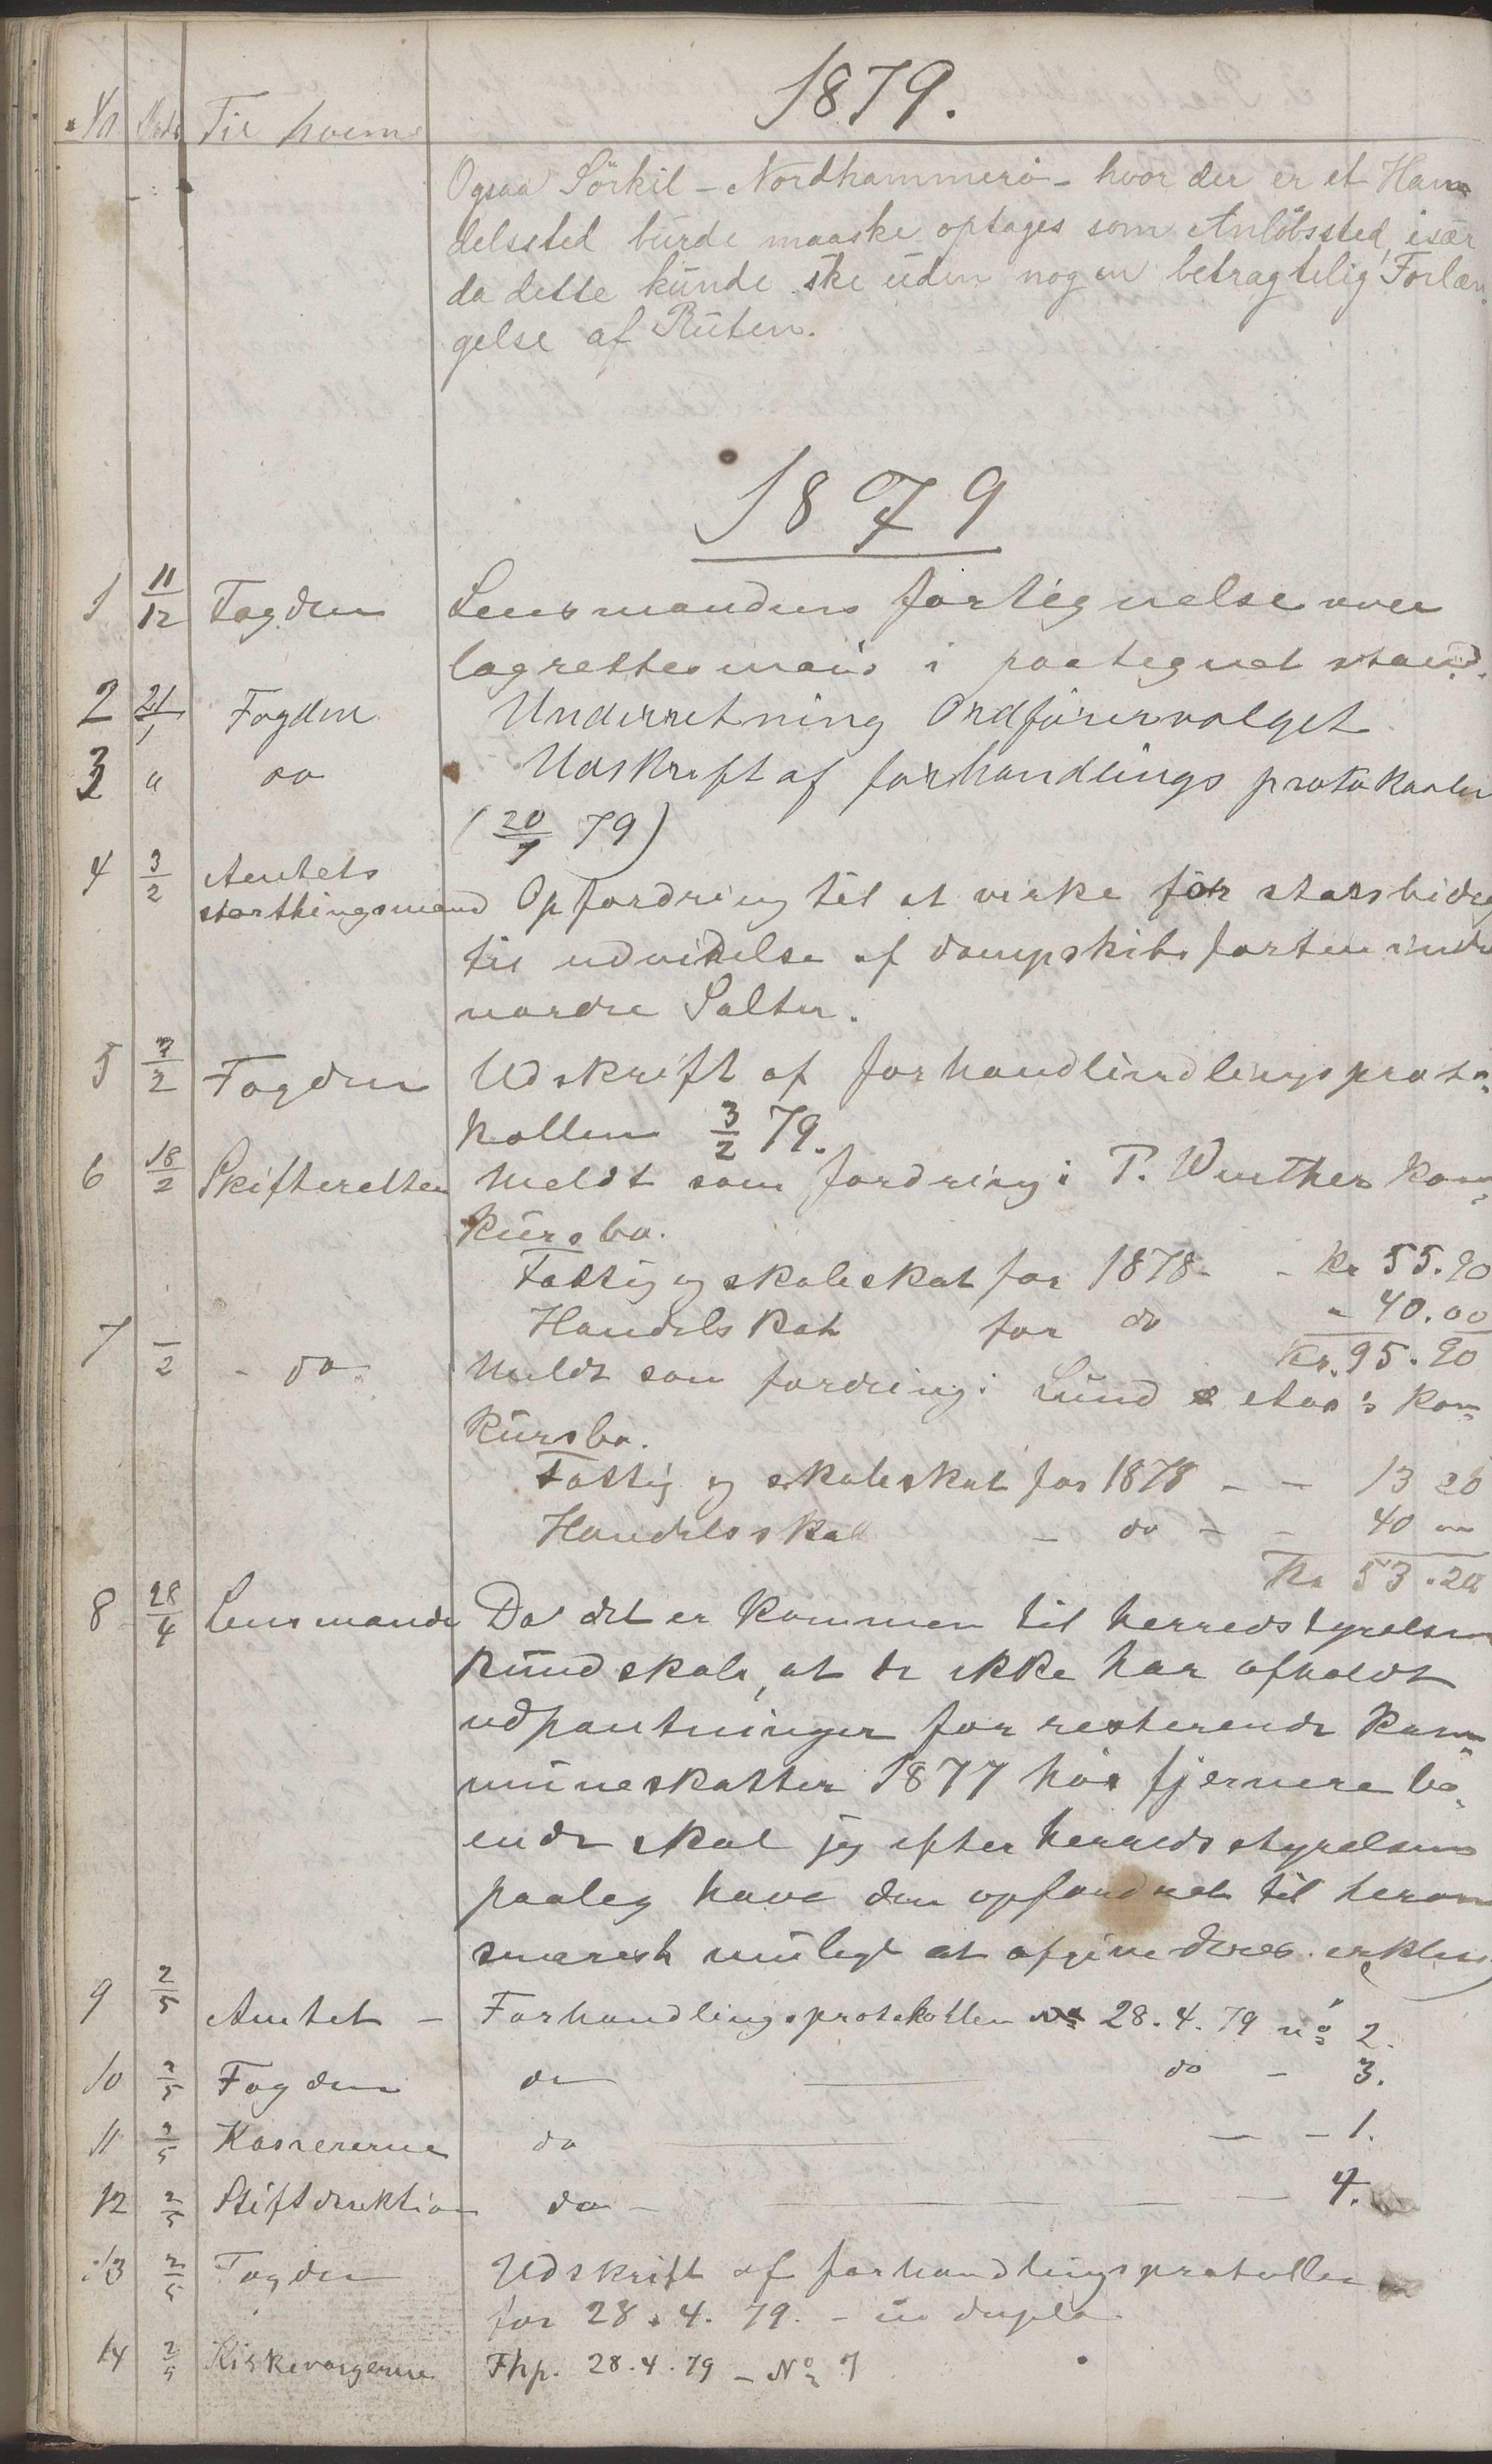 1879.
No Dat. Til hvem
Ogsaa Sörkil - Nordhammerö - hvor der er et Han
delssted burde maaske optages som Anlöbssted, især
da dette kunde ske uden nogen betragtelig Forlæn
gelse af Ruten.
1879
1 11/12 Fogden Lensmandens fortegnelse over
lagrettesmænd i paategnet stand.
2 21/1 Fogden Underretning Ordförervalget
3 " do Udskrift af forhandlings protokollen
(20/1 79)
4 3/2 Amtets
storthingsmænd Opfordring til at virke for statsbidrag
til udvidelse af dampskibsfarten indre
nordre Salten.
5 7/2 Fogden Udskrift af forhandlindlingsproto-
kollen 3/2 79.
6 18/2 Skifteretten Meldt som fordring i P. Winther kon-
kursbo.
Fattig og skoleskat for 1878 - - Kr 55.20
Handelskat for do " 40.00
Kr. 95.20
7 -/2 - do - Meldt som fordring i Lund & etos's kon-
kursbo.
Fattig og skoleskat for 1878 - - 13 20
Handelsskat - do - - 40 00
Kr 53.20
8 28/4 Lensmande Da det er kommen til herredstyrelsen
kundskab, at de ikke har afholdt
udpantninger for resterende kom-
muneskatter 1877 hos fjernere bo-
ende skal jeg efter herredsstyrelsens
paaleg have dem opfordret til herom
snarest muligt at afgive deres erklæ
9 2/5 Amtet - Forhandlingsprotokollen 28.4.79 no 2.
10 2/5 Fogden do do - 3.
11 2/5 Kassererne do - - 1.
12 2/5 Stiftdirektion do - - - 4.
13 2/5 Fogden Udskrift af forhandlingsprotollen
for 28.4.79. - in duplo
14 2/5 Kirkevargerne Fhp. 28.4.79 - No 7